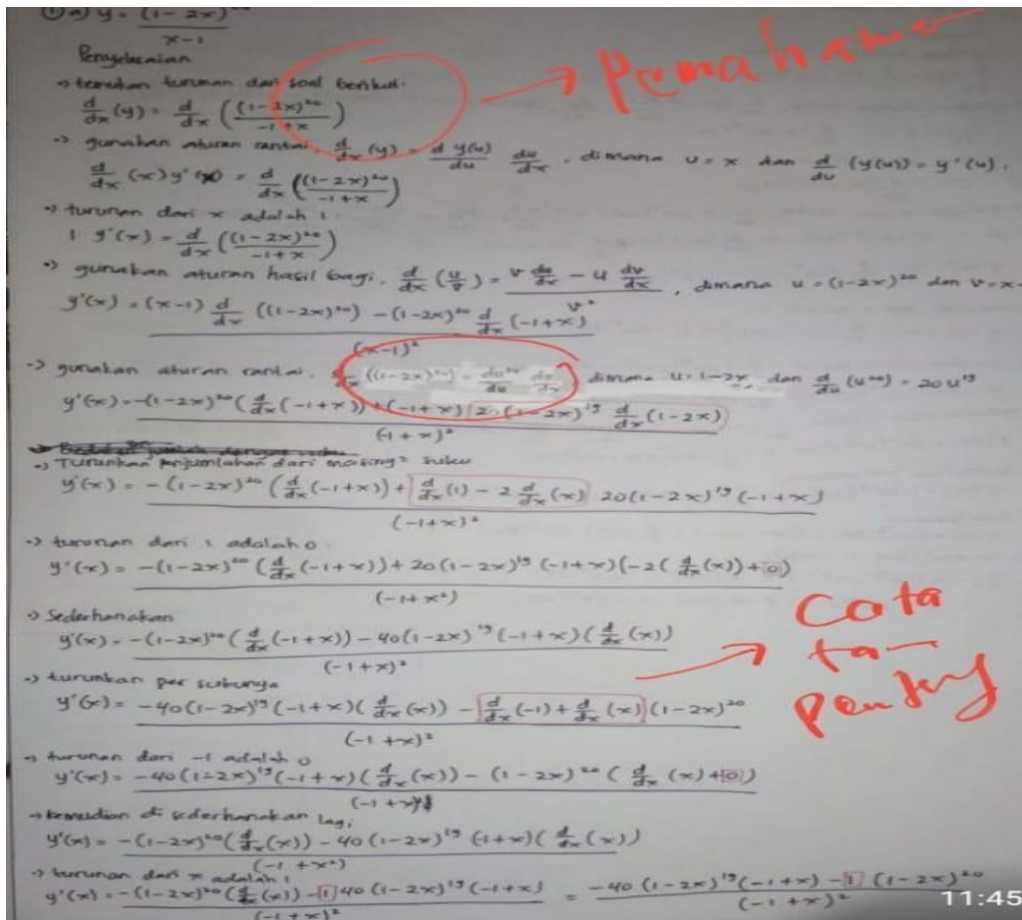 ① a) y = (1-2x)²⁰ / x-1
Penyelesaian
→ temukan turunan dari soal berikut.
→ Pemahama
d/dx (y) = d/dx ((1-2x)²⁰ / -1+x)
→ gunakan aturan rantai, d/dx (y) = d y(u)/du du/dx, dimana u = x dan d/du (y(u)) = y'(u).
d/dx (x) y'(x) = d/dx ((1-2x)²⁰ / -1+x)
→ turunan dari x adalah 1
1 y'(x) = d/dx ((1-2x)²⁰ / -1+x)
→ gunakan aturan hasil bagi. d/dx (u/v) = v du/dx - u dv/dx / v², dimana u = (1-2x)²⁰ dan v = x-
y'(x) = (x-1) d/dx ((1-2x)²⁰) - (1-2x)²⁰ d/dx (-1+x) / (x-1)²
→ gunakan aturan rantai. d/dx ((1-2x)²⁰) = du²⁰/du du/dx dimana u = 1-2x, dan d/du (u²⁰) = 20u¹⁹
y'(x) = -(1-2x)²⁰ (d/dx (-1+x)) + (-1+x) 20 (1-2x)¹⁹ d/dx (1-2x) / (-1+x)²
→ Turunkan penjumlahan dari masing² suku
y'(x) = -(1-2x)²⁰ (d/dx (-1+x)) + d/dx (1) - 2 d/dx (x) 20(1-2x)¹⁹ (-1+x) / (-1+x)²
→ turunan dari 1 adalah 0.
y'(x) = -(1-2x)²⁰ (d/dx (-1+x)) + 20(1-2x)¹⁹ (-1+x) (-2 (d/dx (x)) + 0) / (-1+x²)
→ Sederhanakan
y'(x) = -(1-2x)²⁰ (d/dx (-1+x)) - 40(1-2x)¹⁹ (-1+x) (d/dx (x)) / (-1+x)²
→ Catatan penting
→ turunkan per sukunya
y'(x) = -40(1-2x)¹⁹ (-1+x) (d/dx (x)) - d/dx (-1) + d/dx (x) (1-2x)²⁰ / (-1+x)²
→ turunan dari -1 adalah 0
y'(x) = -40(1-2x)¹⁹ (-1+x) (d/dx (x)) - (1-2x)²⁰ (d/dx (x) + 0) / (-1+x)²
→ kemudian di sederhanakan lagi
y'(x) = -(1-2x)²⁰ (d/dx (x)) - 40(1-2x)¹⁹ (-1+x) (d/dx (x)) / (-1+x²)
→ turunan dari x adalah 1
y'(x) = -(1-2x)²⁰ (d/dx (x)) - 1 40 (1-2x)¹⁹ (-1+x) / (-1+x)² = -40 (1-2x)¹⁹ (-1+x) - 1 (1-2x)²⁰ / (-1+x)²
11:45